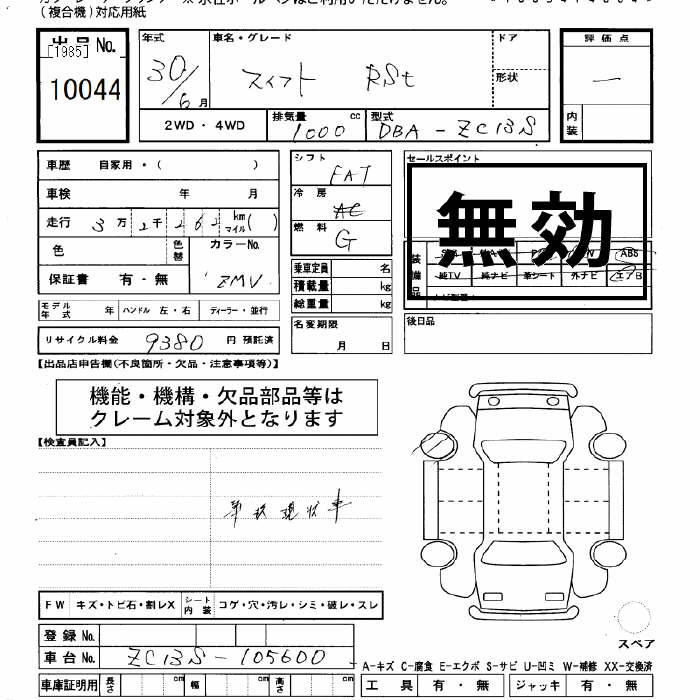 (複合機)対応用紙
出品 No.
[1985]
10044
年式 車名・グレード ドア
30/6月 スイフト RSt 形状
評価点
一
内装
2WD・4WD 排気量 1000 cc 型式 DBA-ZC13S
車歴 自家用・( )
車検 年 月
走行 3万2千262 km マイル( )
色 色替 カラーNo.
保証書 有・無 ZMV
モデル年式 年 ハンドル 左・右 ディーラー・並行
リサイクル料金 9380 円 預託済
シフト FAT
冷房 AC
燃料 G
乗車定員 名
積載量 kg
総重量 kg
名変期限
月 日
セールスポイント
無効
装備品
ABS
純TV 純ナビ 革シート 外ナビ エアB
後日品
【出品店申告欄(不良箇所・欠品・注意事項等)】
機能・機構・欠品部品等は
クレーム対象外となります
【検査員記入】
事故現状車
FW キズ・トビ石・割レX シート内装 コゲ・穴・汚レ・シミ・破レ・スレ
登録 No.
車台 No. ZC13S-105600
車庫証明用 長さ cm 幅 cm 高さ cm
スペア
A-キズ C-腐食 E-エクボ S-サビ U-凹ミ W-補修 XX-交換済
工具 有・無 ジャッキ 有・無